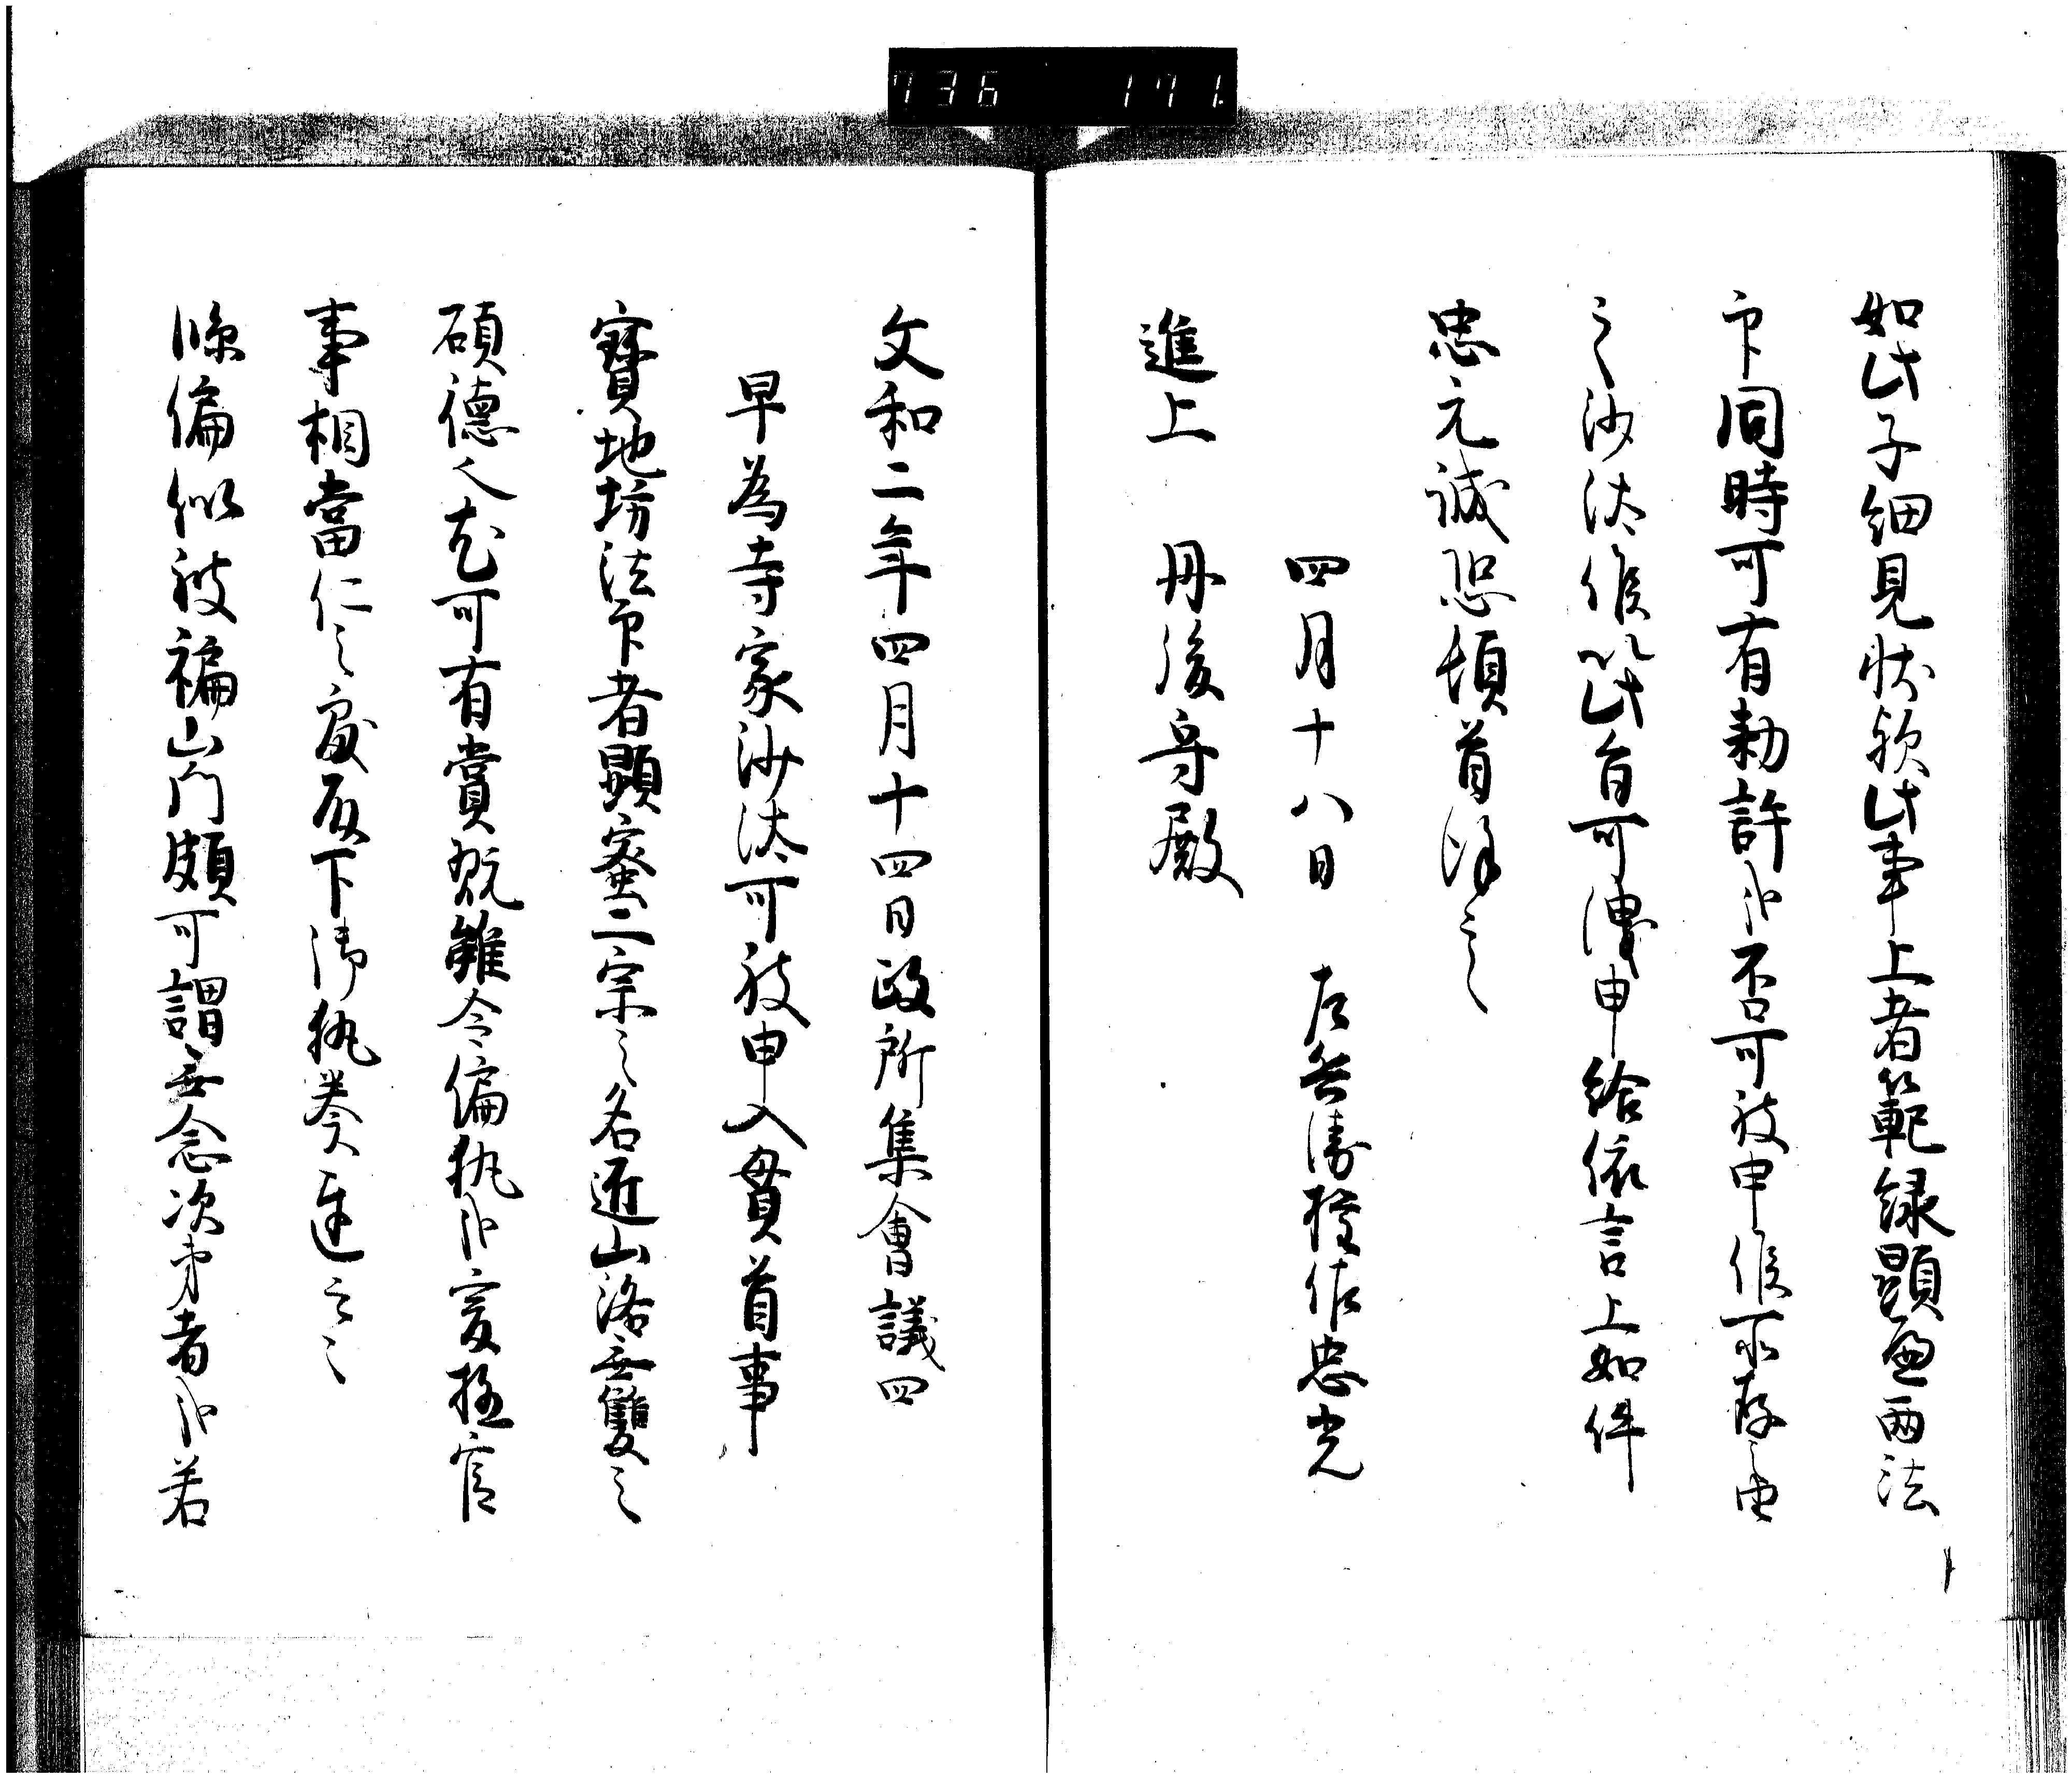 736 171
如此子細見状候歟此事上者範縁顕遍両法
印同時可有勅許哉否可被申候所存之由
之沙汰候以此旨可洩申給依言上如件
忠光誠恐頓首謹言
四月十八日 左兵衛権佐忠光
進上 丹後守殿
文和二年四月十四日政所集會議曰
早為寺家沙汰可被申入貫首事
寶地坊法印者顕蜜二宗之名匠山洛無雙之
碩徳也尤可有賞翫雖令偏執哉爰極官
事相當仁之處返下御執奏達云々
條偏似被褊山門頗可謂無念次第者哉若